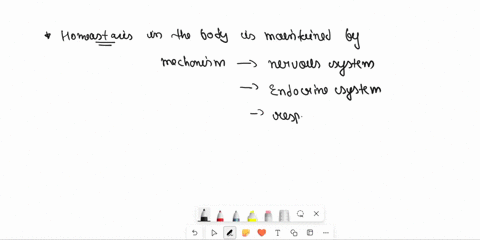 * Homeostasis in the body is maintained by
mechanism → nervous system
→ Endocrine system
→ resp